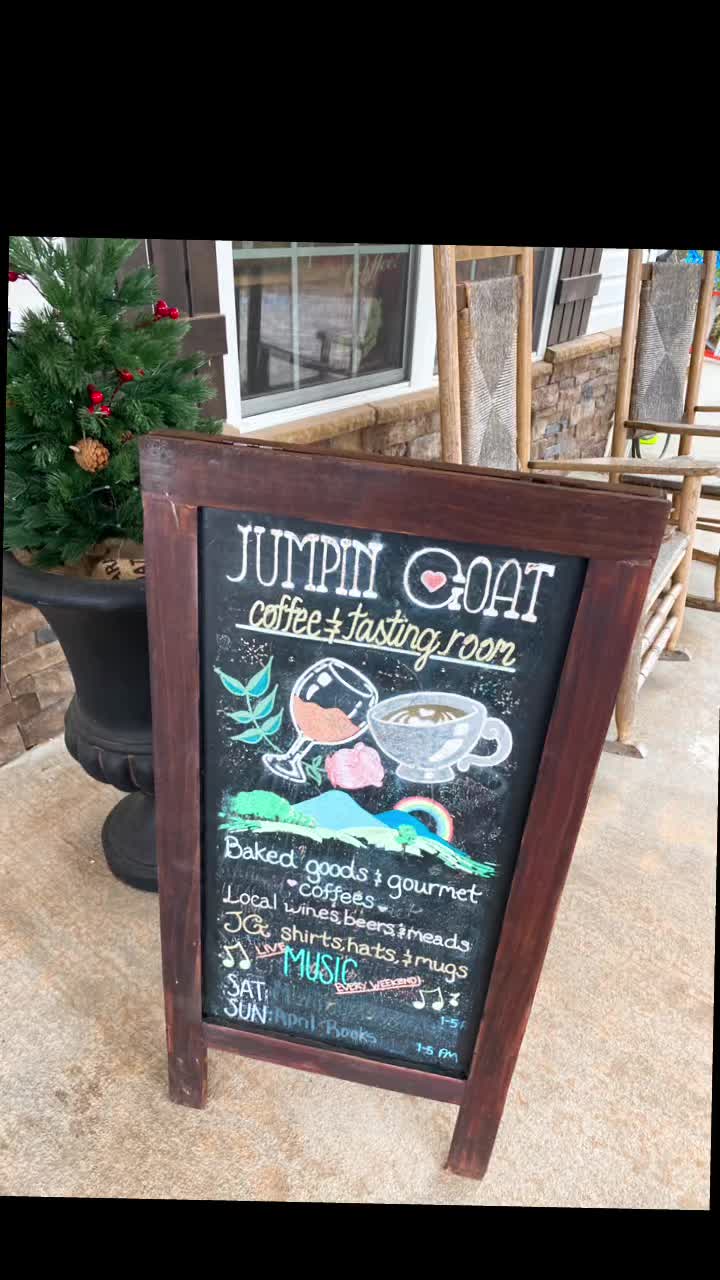 JUMPIN GOAT
coffee & tasting room
Baked goods & gourmet
coffees
Local wines, beers, & meads
JG shirts, hats, & mugs
LIVE MUSIC
EVERY WEEKEND!
SAT: 1-5
SUN: April Rooks 1-5 PM